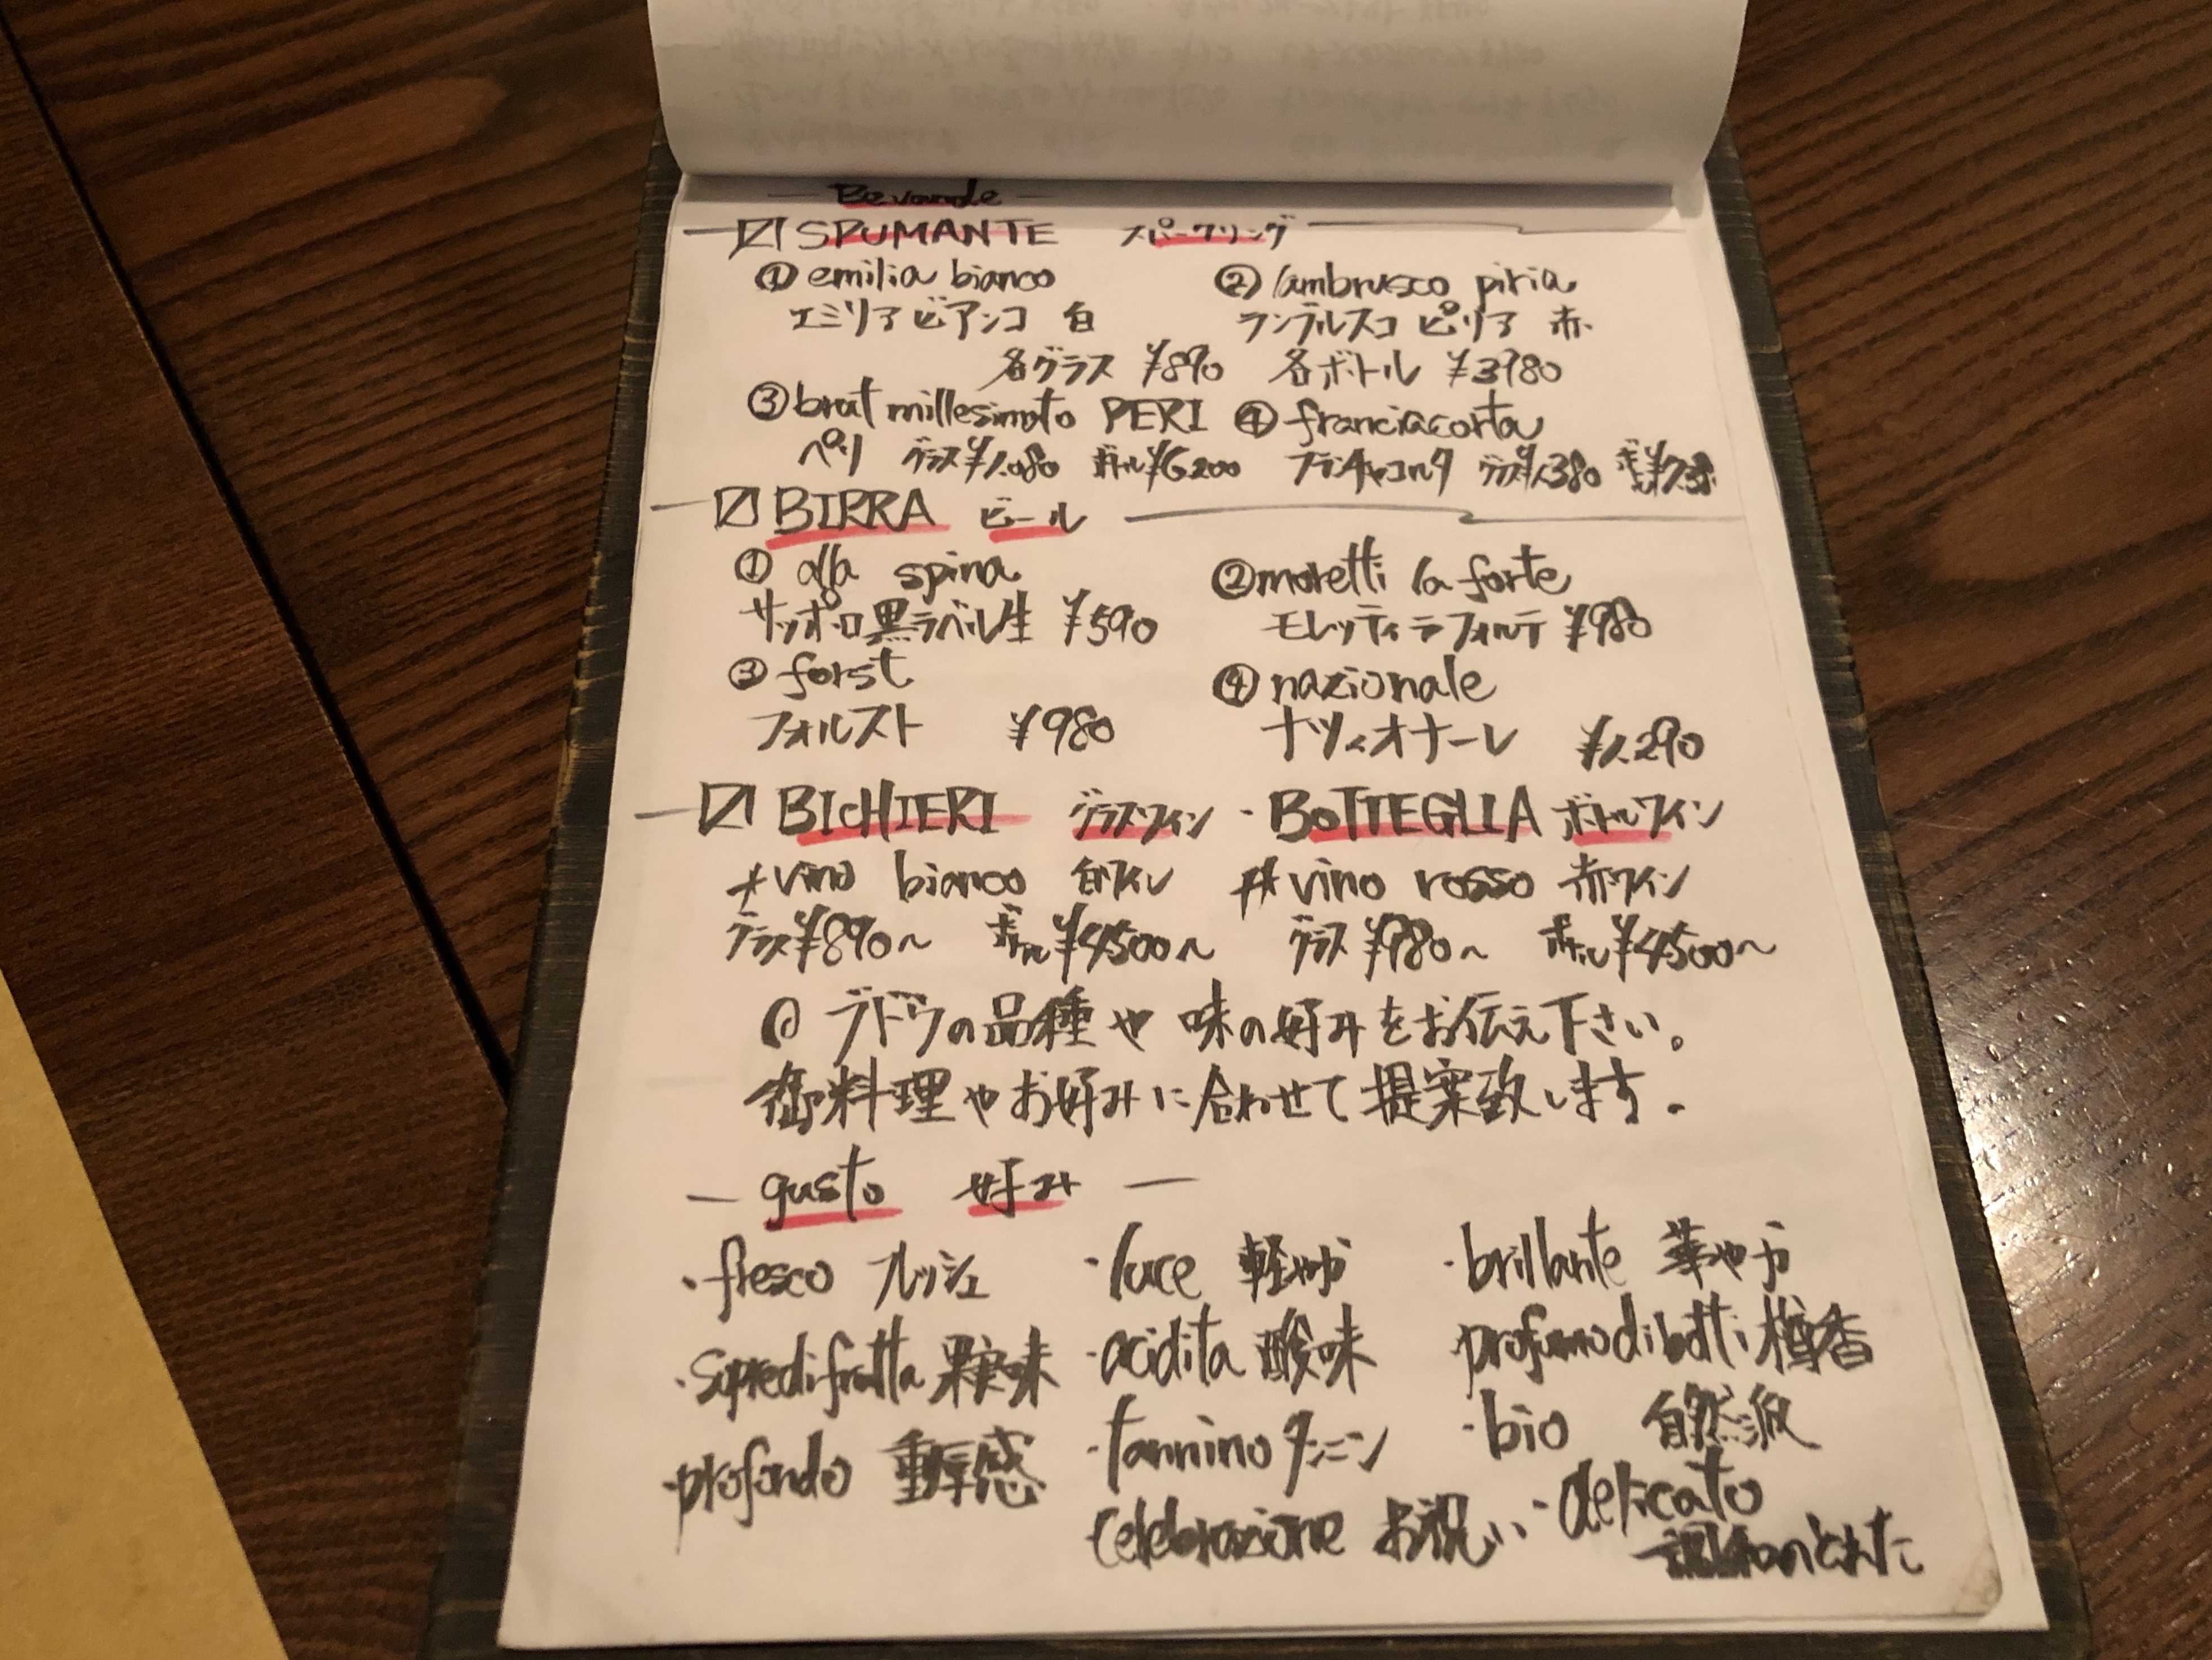 Bevande
☑ SPUMANTE スパークリング
① emilia bianco ② lambrusco piria
エミリア ビアンコ 白 ランブルスコ ピリア 赤
各グラス ¥890 各ボトル ¥3980
③ brut millesimato PERI ④ franciacorta
ペリ グラス¥1.080 ボトル¥6200 フランチャコルタ グラス¥1.380
☑ BIRRA ビール
① alla spina ② moretti la forte
サッポロ黒ラベル生 ¥590 モレッティ ラ フォルテ ¥980
③ forst ④ nazionale
フォルスト ¥980 ナツィオナーレ ¥1.290
☑ BICHIERI グラスワイン・BOTTEGLIA ボトルワイン
# vino bianco 白ワイン # vino rosso 赤ワイン
グラス¥890〜 ボトル¥4500〜 グラス¥980〜 ボトル¥4500〜
ブドウの品種や味の好みをお伝え下さい。
御料理やお好みに合わせて提案致します。
— gusto 好み —
・fresco フレッシュ ・luce 軽やか ・brillante 華やか
・Sapredifrutta 果実味 ・acidita 酸味 profumodibotti 樽香
・profondo 重厚感 ・tannino タンニン ・bio 自然派
celebrazione お祝い ・delicato
調和のとれた